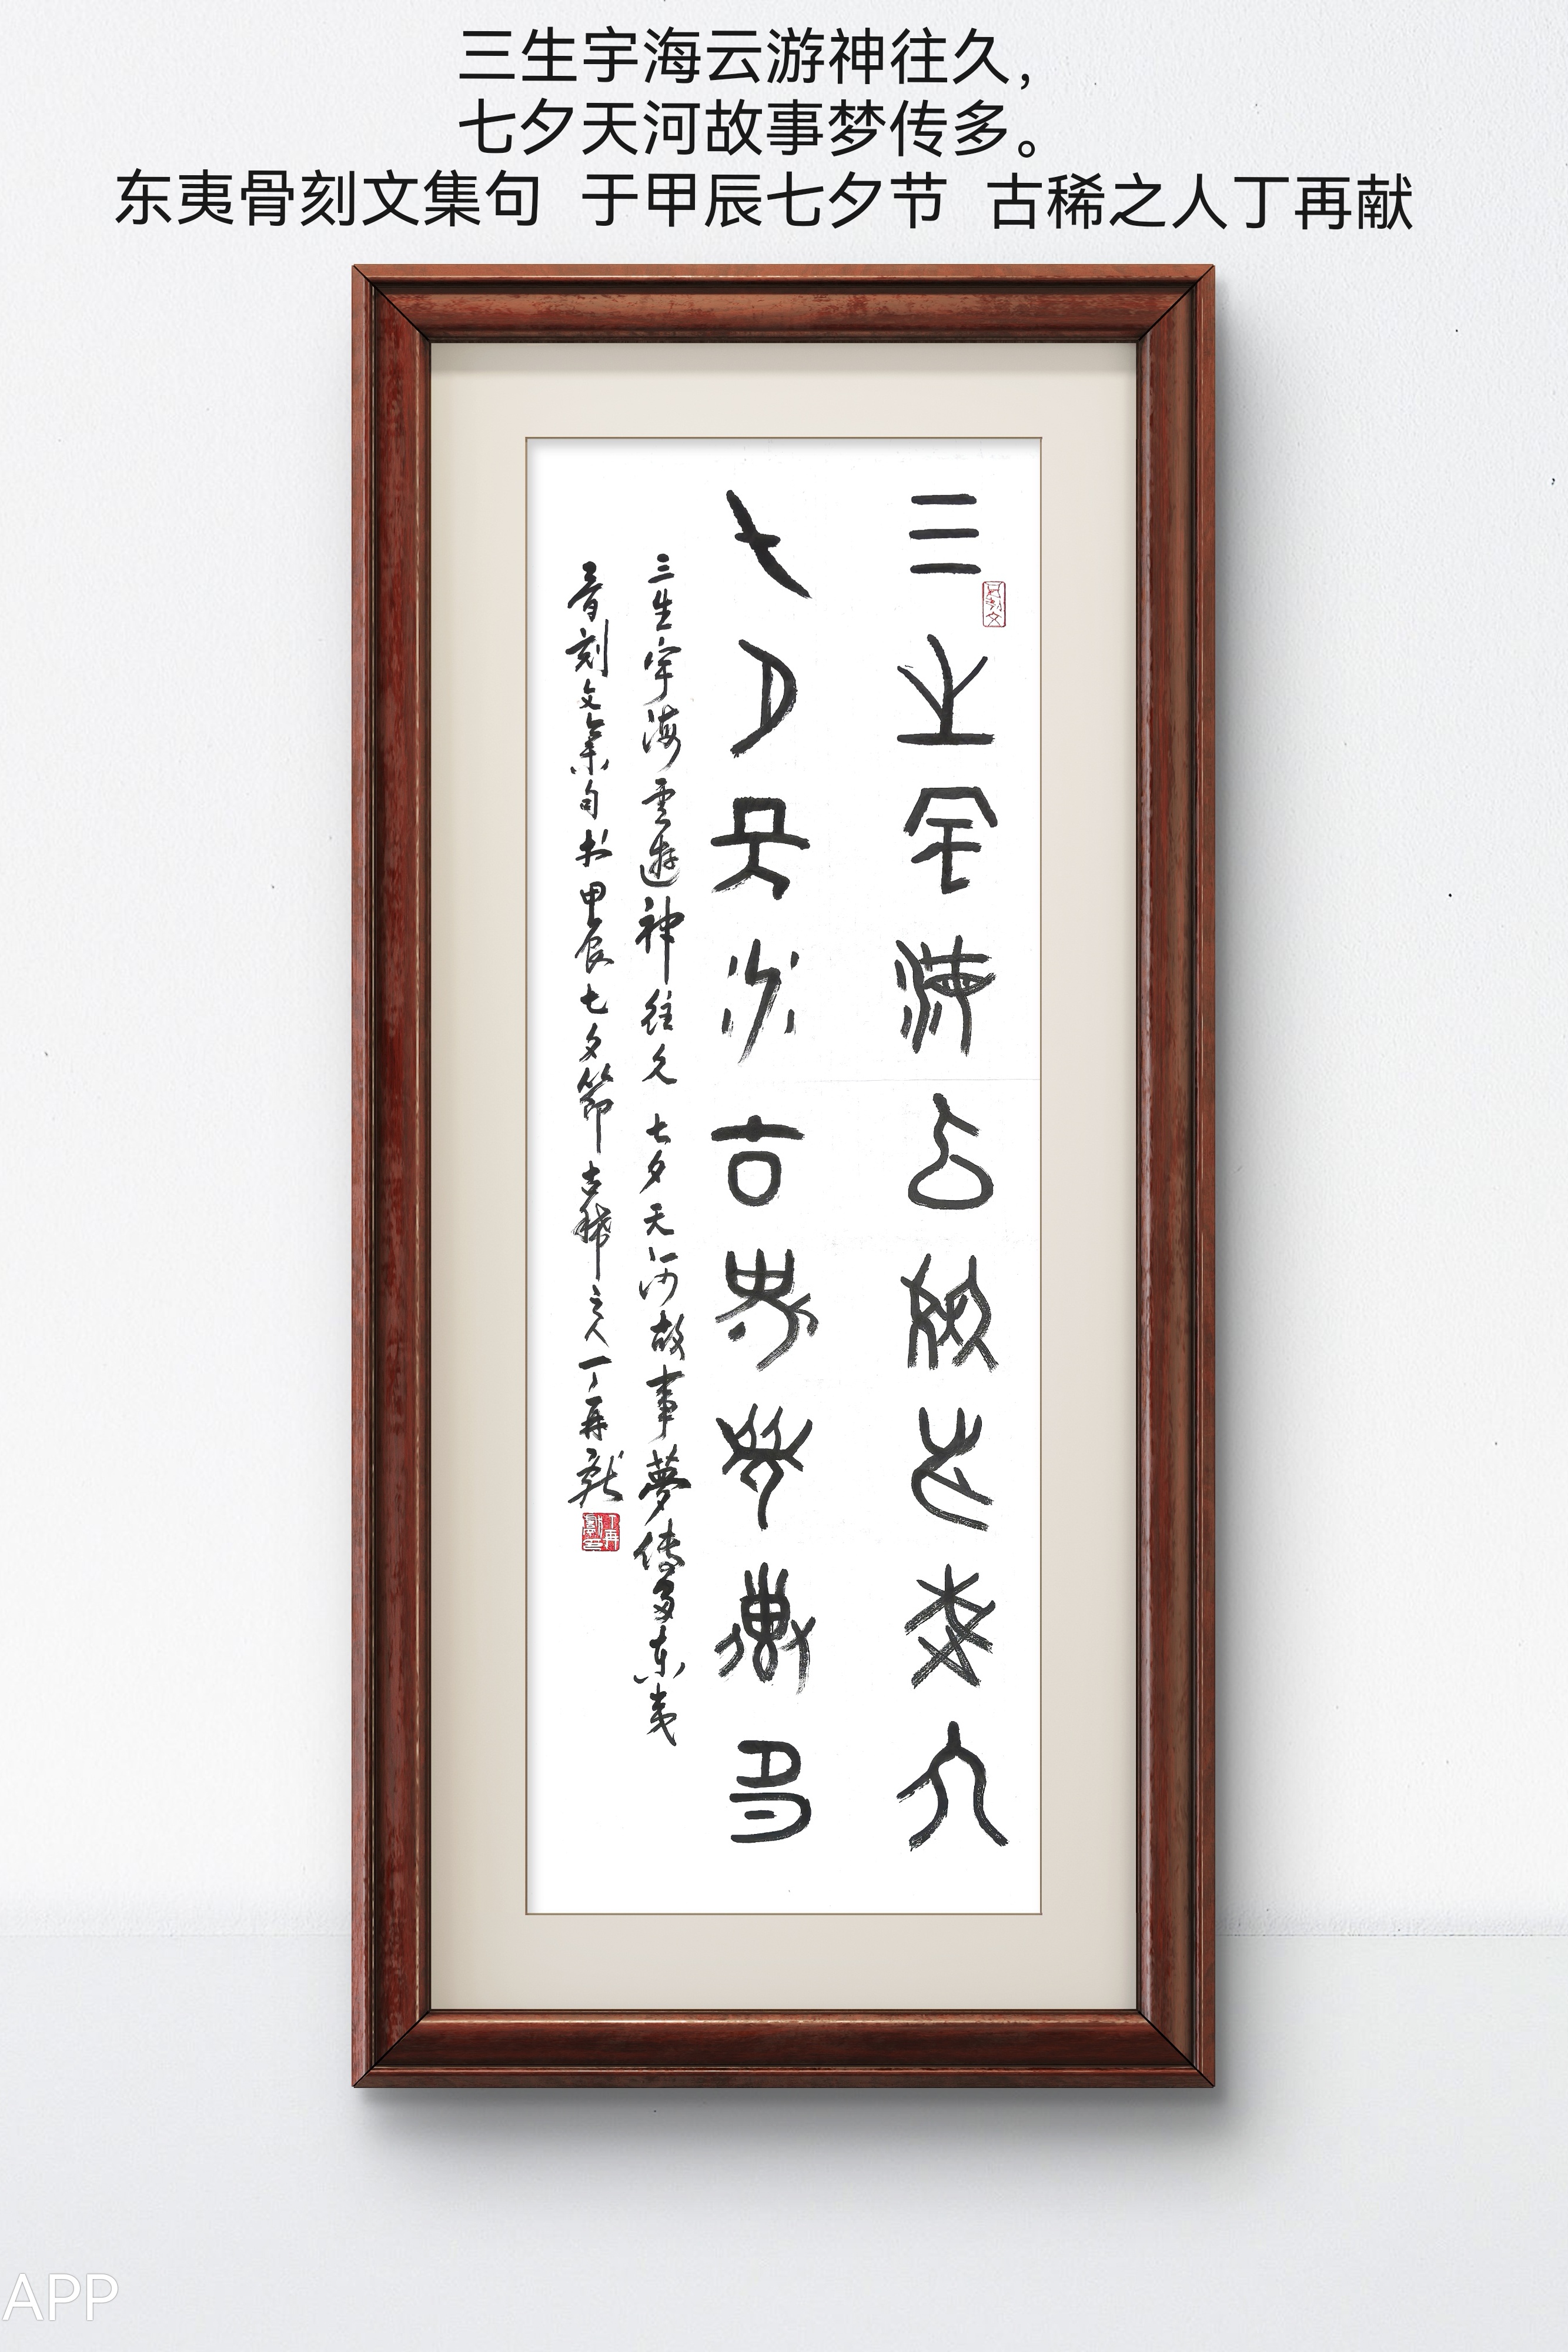 三生宇海云游神往久，
七夕天河故事梦传多。
东夷骨刻文集句 于甲辰七夕节 古稀之人丁再献
三生宇海云游神往久
七夕天河故事梦传多
三生宇海雲遊神往久 七夕天河故事夢传多东夷
骨刻文集句书甲辰七夕節古稀之人丁再献
骨刻文
丁再献
APP